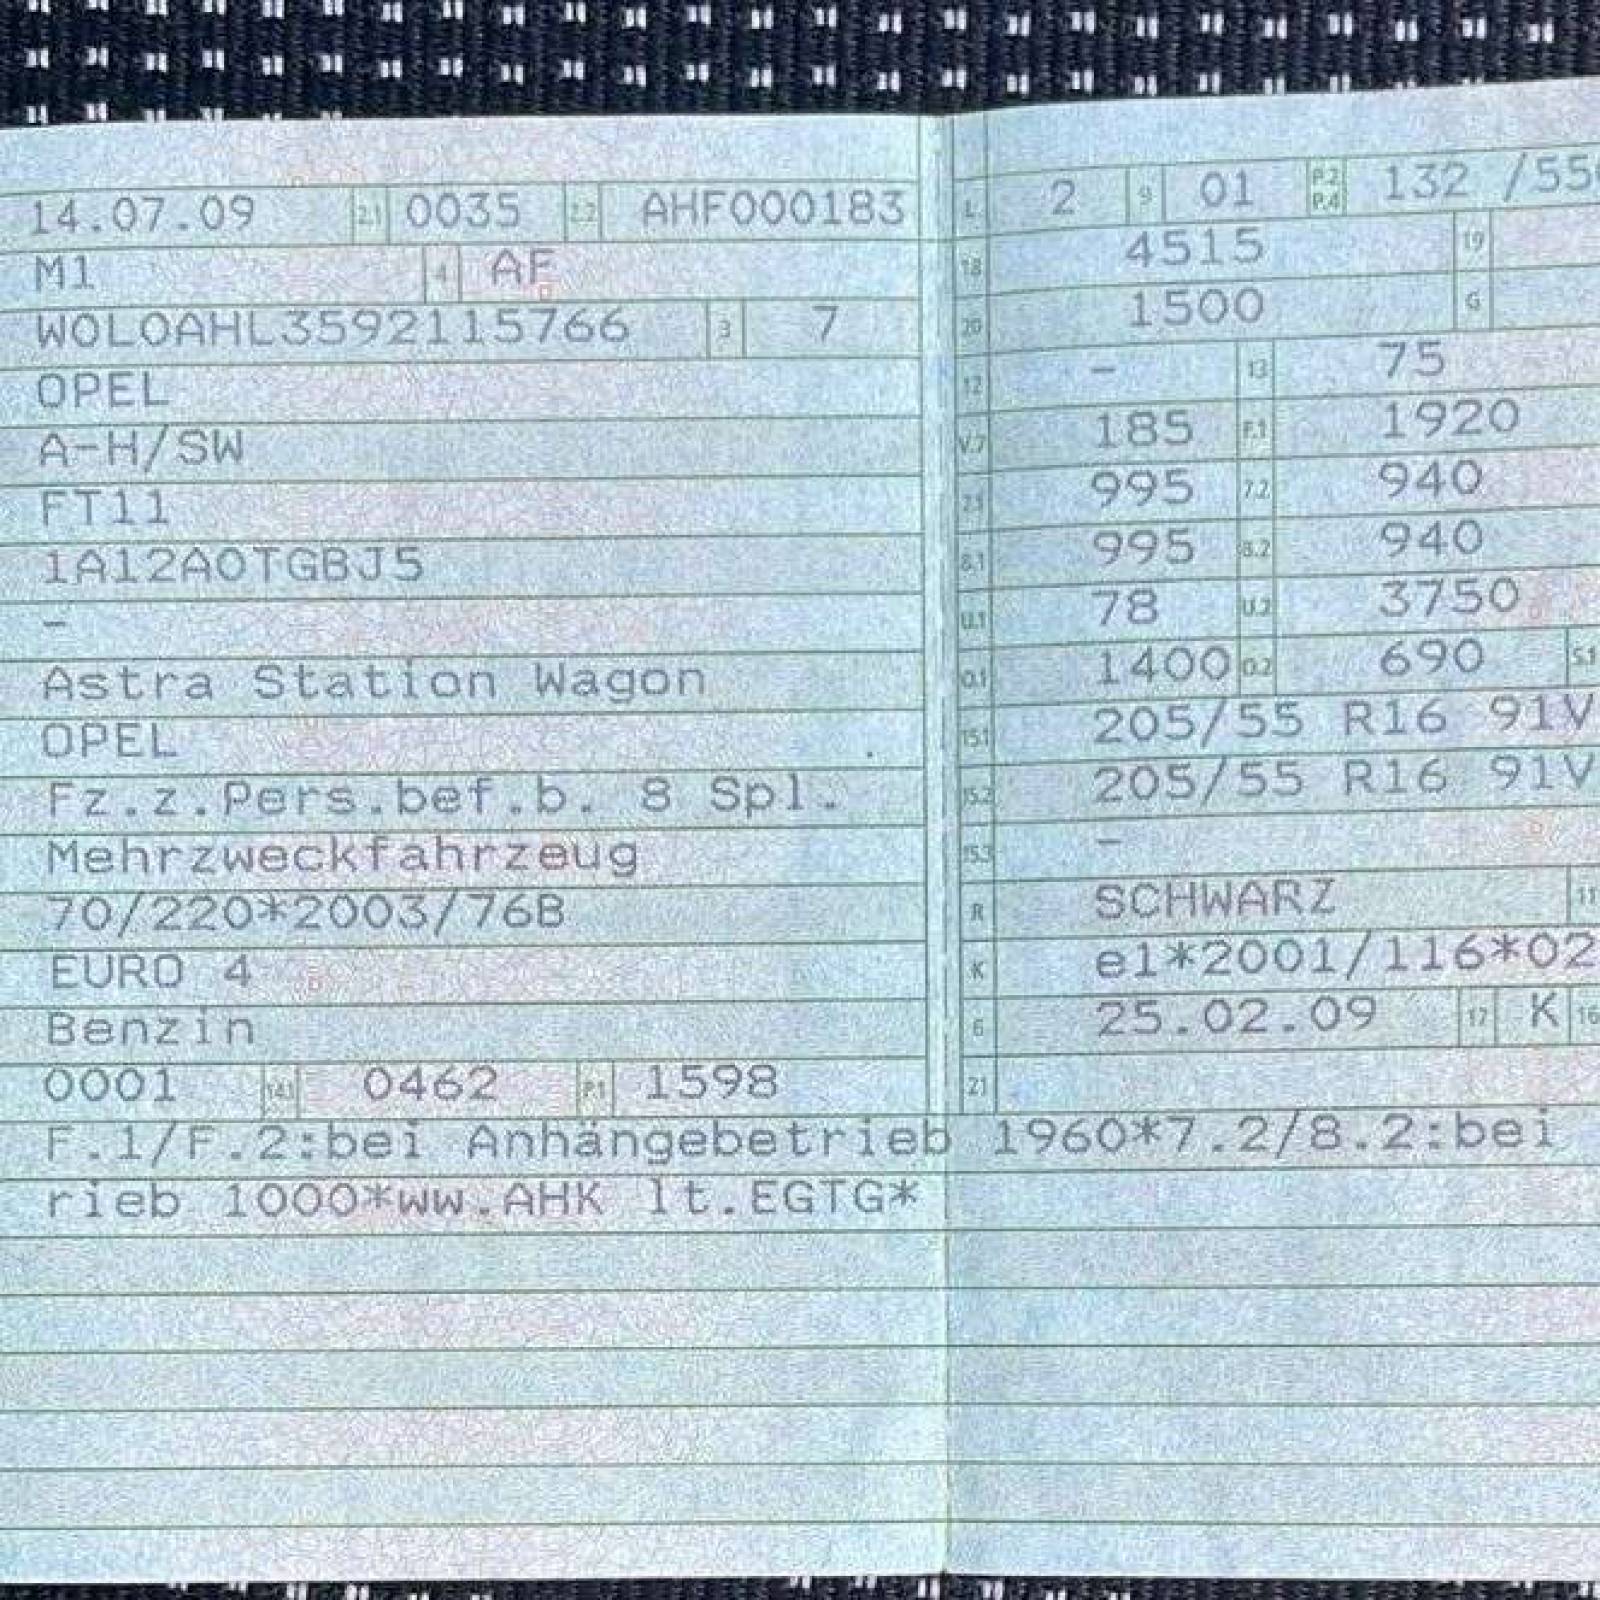 14.07.09 2.1 0035 2.2 AHF000183
M1 4 AF
W0L0AHL3592115766 3 7
OPEL
A-H/SW
FT11
1A12A0TGBJ5
-
Astra Station Wagon
OPEL
Fz.z.Pers.bef.b. 8 Spl.
Mehrzweckfahrzeug
70/220*2003/76B
EURO 4
Benzin
0001 14.1 0462 P.1 1598
L 2 9 01 P.2 P.4 132 /550
18 4515 19
20 1500 G
12 - 13 75
V.7 185 F.1 1920
7.1 995 7.2 940
8.1 995 8.2 940
U.1 78 U.2 3750
O.1 1400 O.2 690 S.1
15.1 205/55 R16 91V
15.2 205/55 R16 91V
15.3 -
R SCHWARZ 11
K e1*2001/116*02
6 25.02.09 17 K 16
21
F.1/F.2:bei Anhängebetrieb 1960*7.2/8.2:bei
rieb 1000*ww.AHK lt.EGTG*